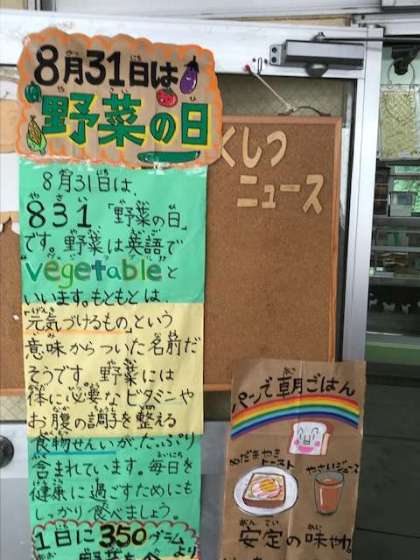 8月31日は
野菜の日
8月31日は、
831「野菜の日」
です。野菜は英語で
"vegetable"と
いいます。もともとは、
「元気づけるもの」という
意味からついた名前だ
そうです。野菜には
体に必要なビタミンや
お腹の調子を整える
食物せんいがたっぷり
含まれています。毎日を
健康に過ごすためにも
しっかり食べましょう。
1日に350グラム
くしつ
ニュース
パンで朝ごはん
めだまやき
トースト
やさいジュース
安定の味や